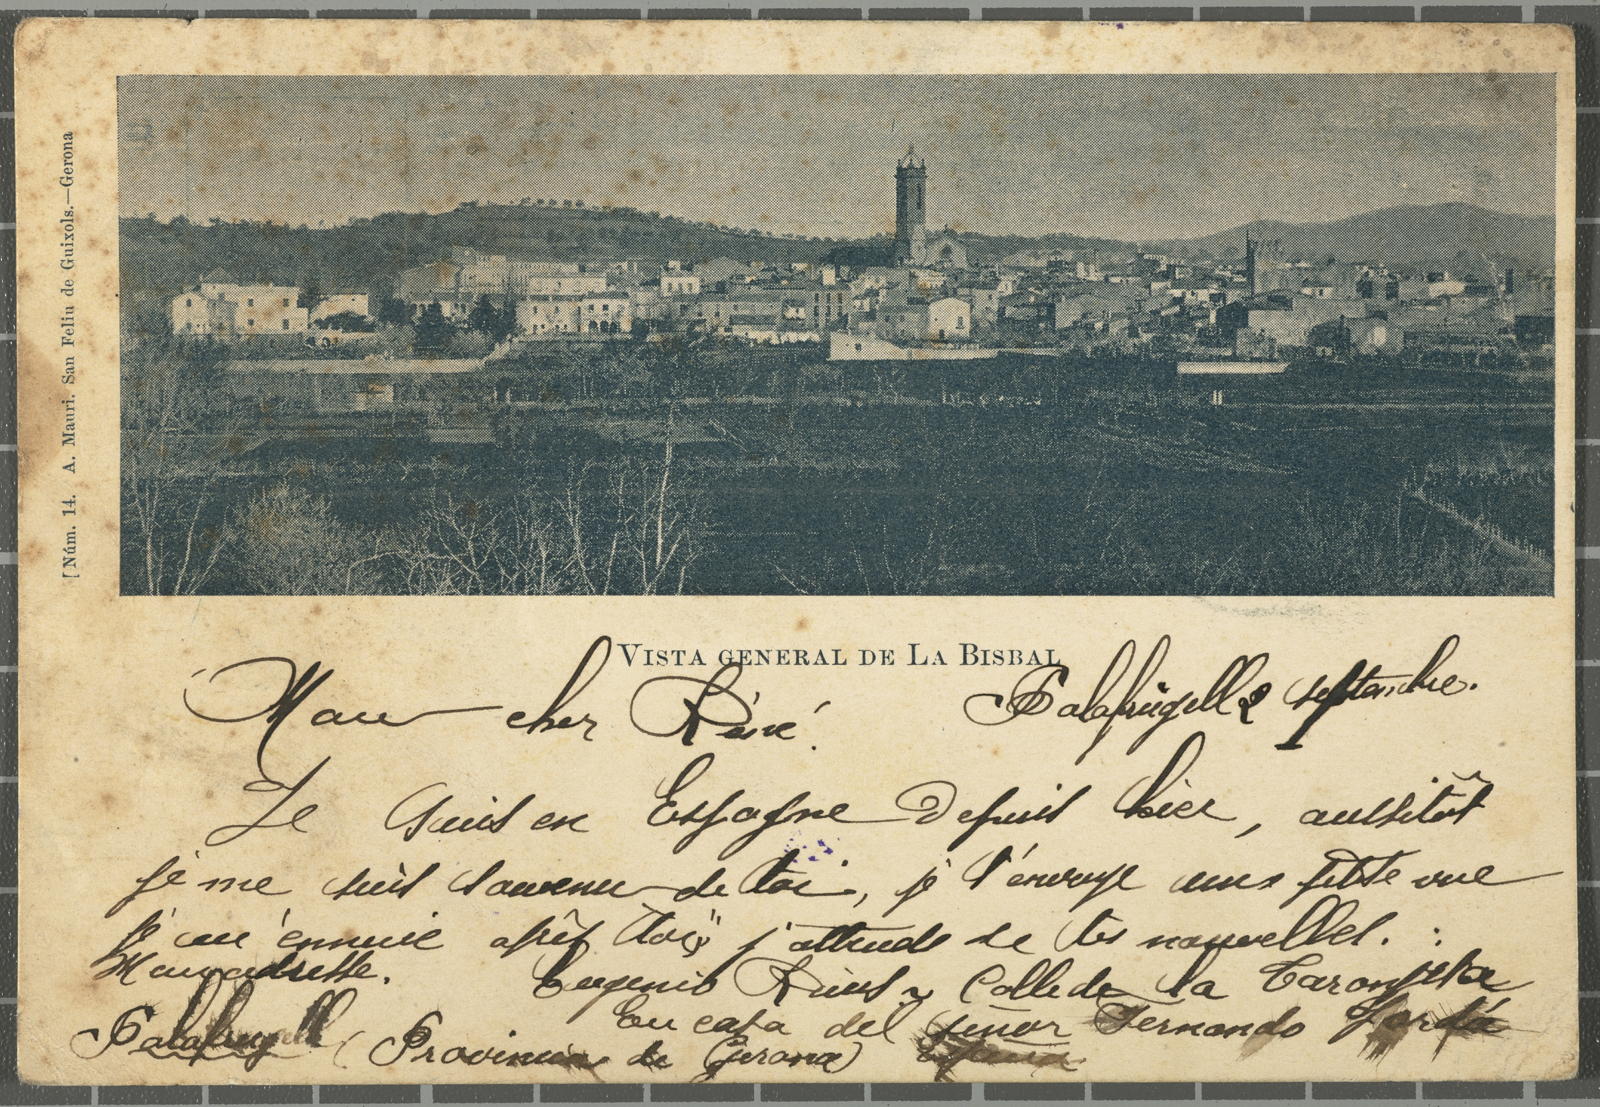 [Núm. 14. A. Mauri. San Feliu de Guixols.—Gerona
VISTA GENERAL DE LA BISBAL
Mon cher Réné! Palafrugell 2 septembre.
Je suis en Espagne depuis hier, aussitôt
je me suis souvenu de toi, je t'envoye une petite vue
je m'ennuie après toi j'attends de tes nouvelles.
Mon adresse. Eugenio Rius Calle de la Taronjeta
En casa del señor Fernando
Palafrugell (Provincia de Gerona) España